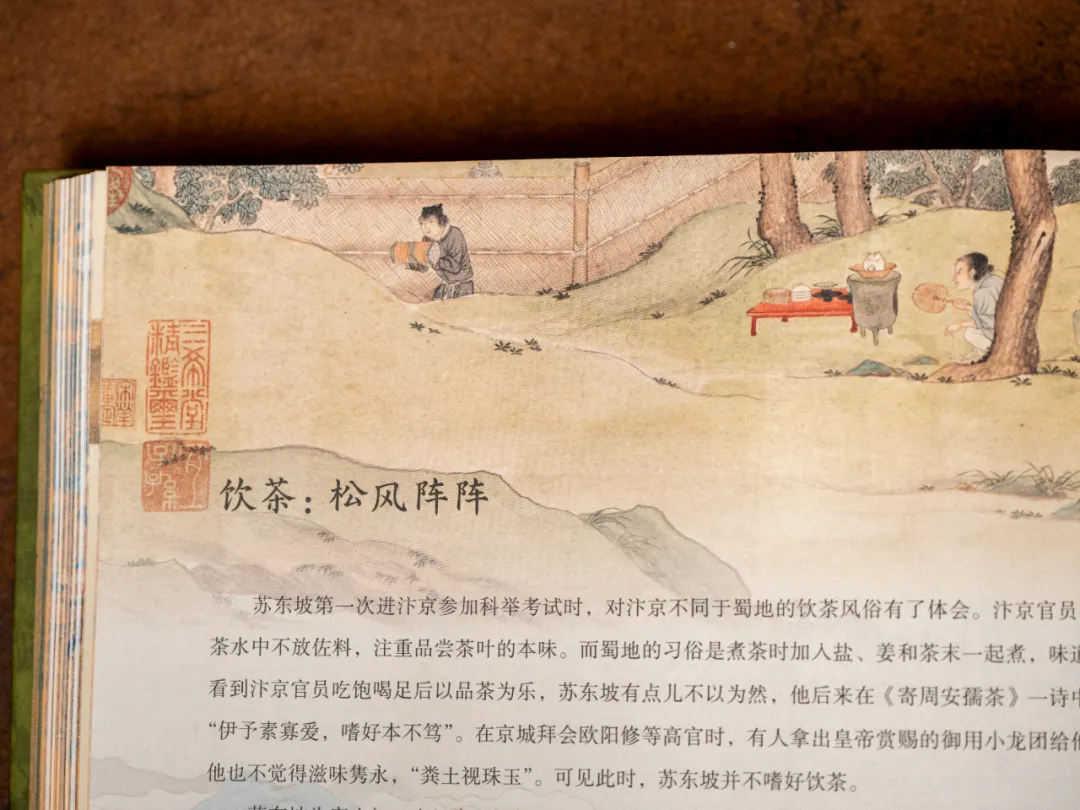 三希堂
精鑑璽
饮茶：松风阵阵
苏东坡第一次进汴京参加科举考试时，对汴京不同于蜀地的饮茶风俗有了体会。汴京官员
茶水中不放佐料，注重品尝茶叶的本味。而蜀地的习俗是煮茶时加入盐、姜和茶末一起煮，味道
看到汴京官员吃饱喝足后以品茶为乐，苏东坡有点儿不以为然，他后来在《寄周安孺茶》一诗中
“伊予素寡爱，嗜好本不笃”。在京城拜会欧阳修等高官时，有人拿出皇帝赏赐的御用小龙团给他
他也不觉得滋味隽永，“粪土视珠玉”。可见此时，苏东坡并不嗜好饮茶。